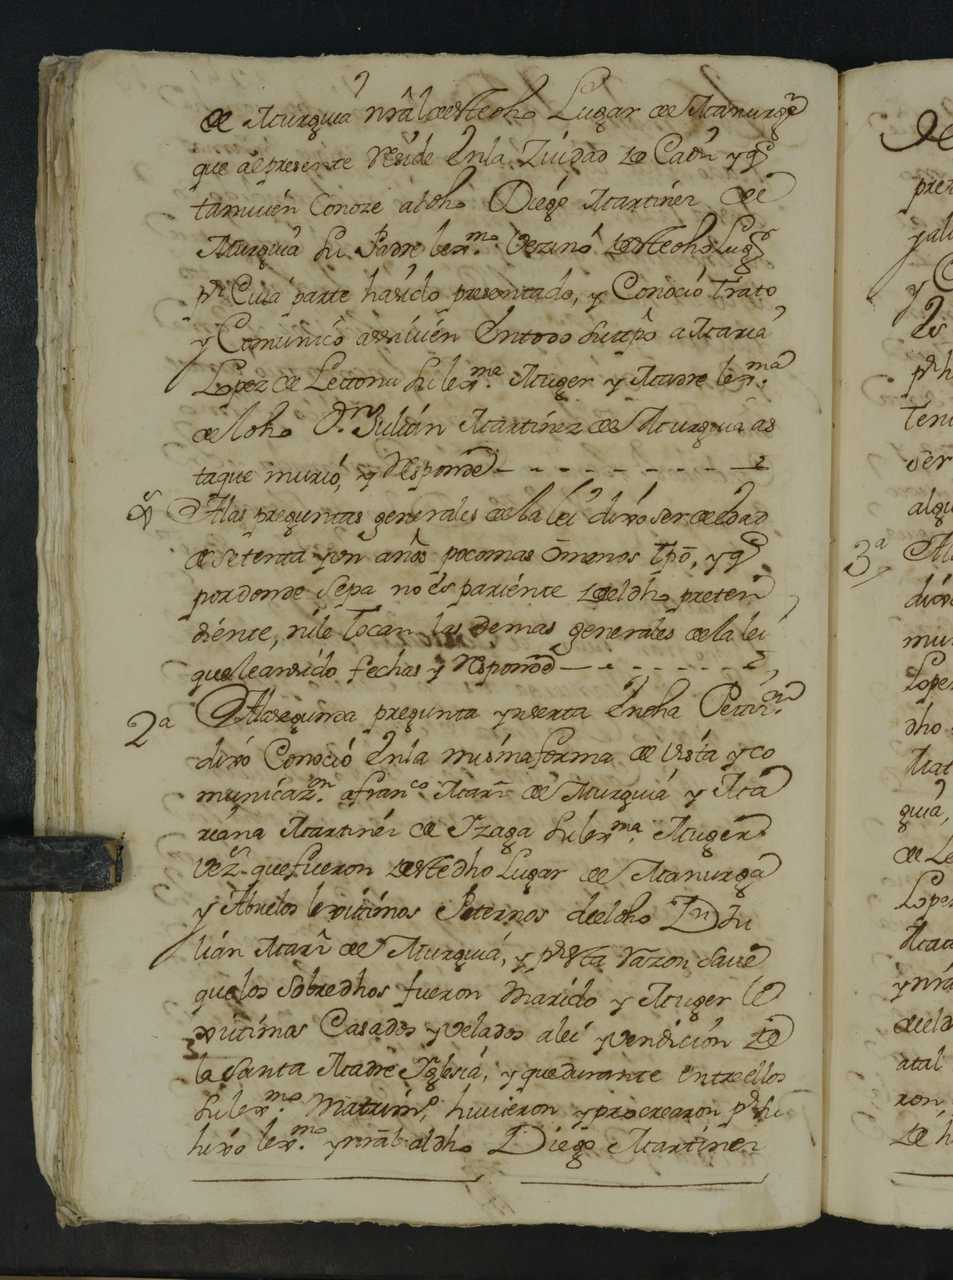 de Murguia nrãl deste dho Lugar de Manurga
que al presente Reside en la Ziudad de Cadiz y qe
tamuien Conoze al dho Diego Martinez de
Murguia su Padre lexmo. Vezino deste dho Lugr
pr Cuia parte ha sido presentado, y Conocio trato
y Comunico assi vien en todo su tpo a Maria
Lopez de Letona su lexma. Muger y Madre lexma.
del dho Dn Julian Martinez de Murguia as
ta que murio, y Responde
Gs A las preguntas generales de la lei dixo ser de edad
de setenta y un años poco mas o menos tpo, y qe
por donde sepa no es pariente del dho preten
diente, ni le tocan las demas generales de la lei
que le an sido fechas y Responde
2a A la segunda pregunta ynserta en dha Petizn
dixo Conocio en la misma forma de vista y co
municazn. a Franco. Marz de Murguia y Ma
riana Martinez de Yzaga su lexma. Muger
vezs. que fueron deste dho Lugar de Manurga
y Abuelos lexitimos Paternos del dho Dn Ju
lian Marz de Murguia, y pr esta Razon save
que los sobre dhos fueron Marido y Muger le
xitimos Casados y velados a lei y vendicion de
la Santa Madre Yglesia, y que durante entre ellos
su lexmo. Matrimo. huvieron y procrearon pr su
hixo lexmo. y nrãl al dho Diego Martinez
3a